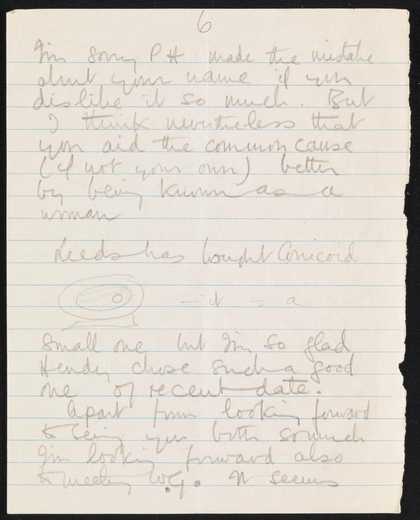 6
I'm sorry P H made the mistake
about your name if you
dislike it so much. But
I think nevertheless that
you aid the common cause
(if not your own) better
by being known as a
woman
Leeds has bought Conicoid
— it is a
small one but I'm so glad
Hendy chose such a good
one of recent date.
Apart from looking forward
to seeing you both so much
I'm looking forward also
to meeting W.G. It seems